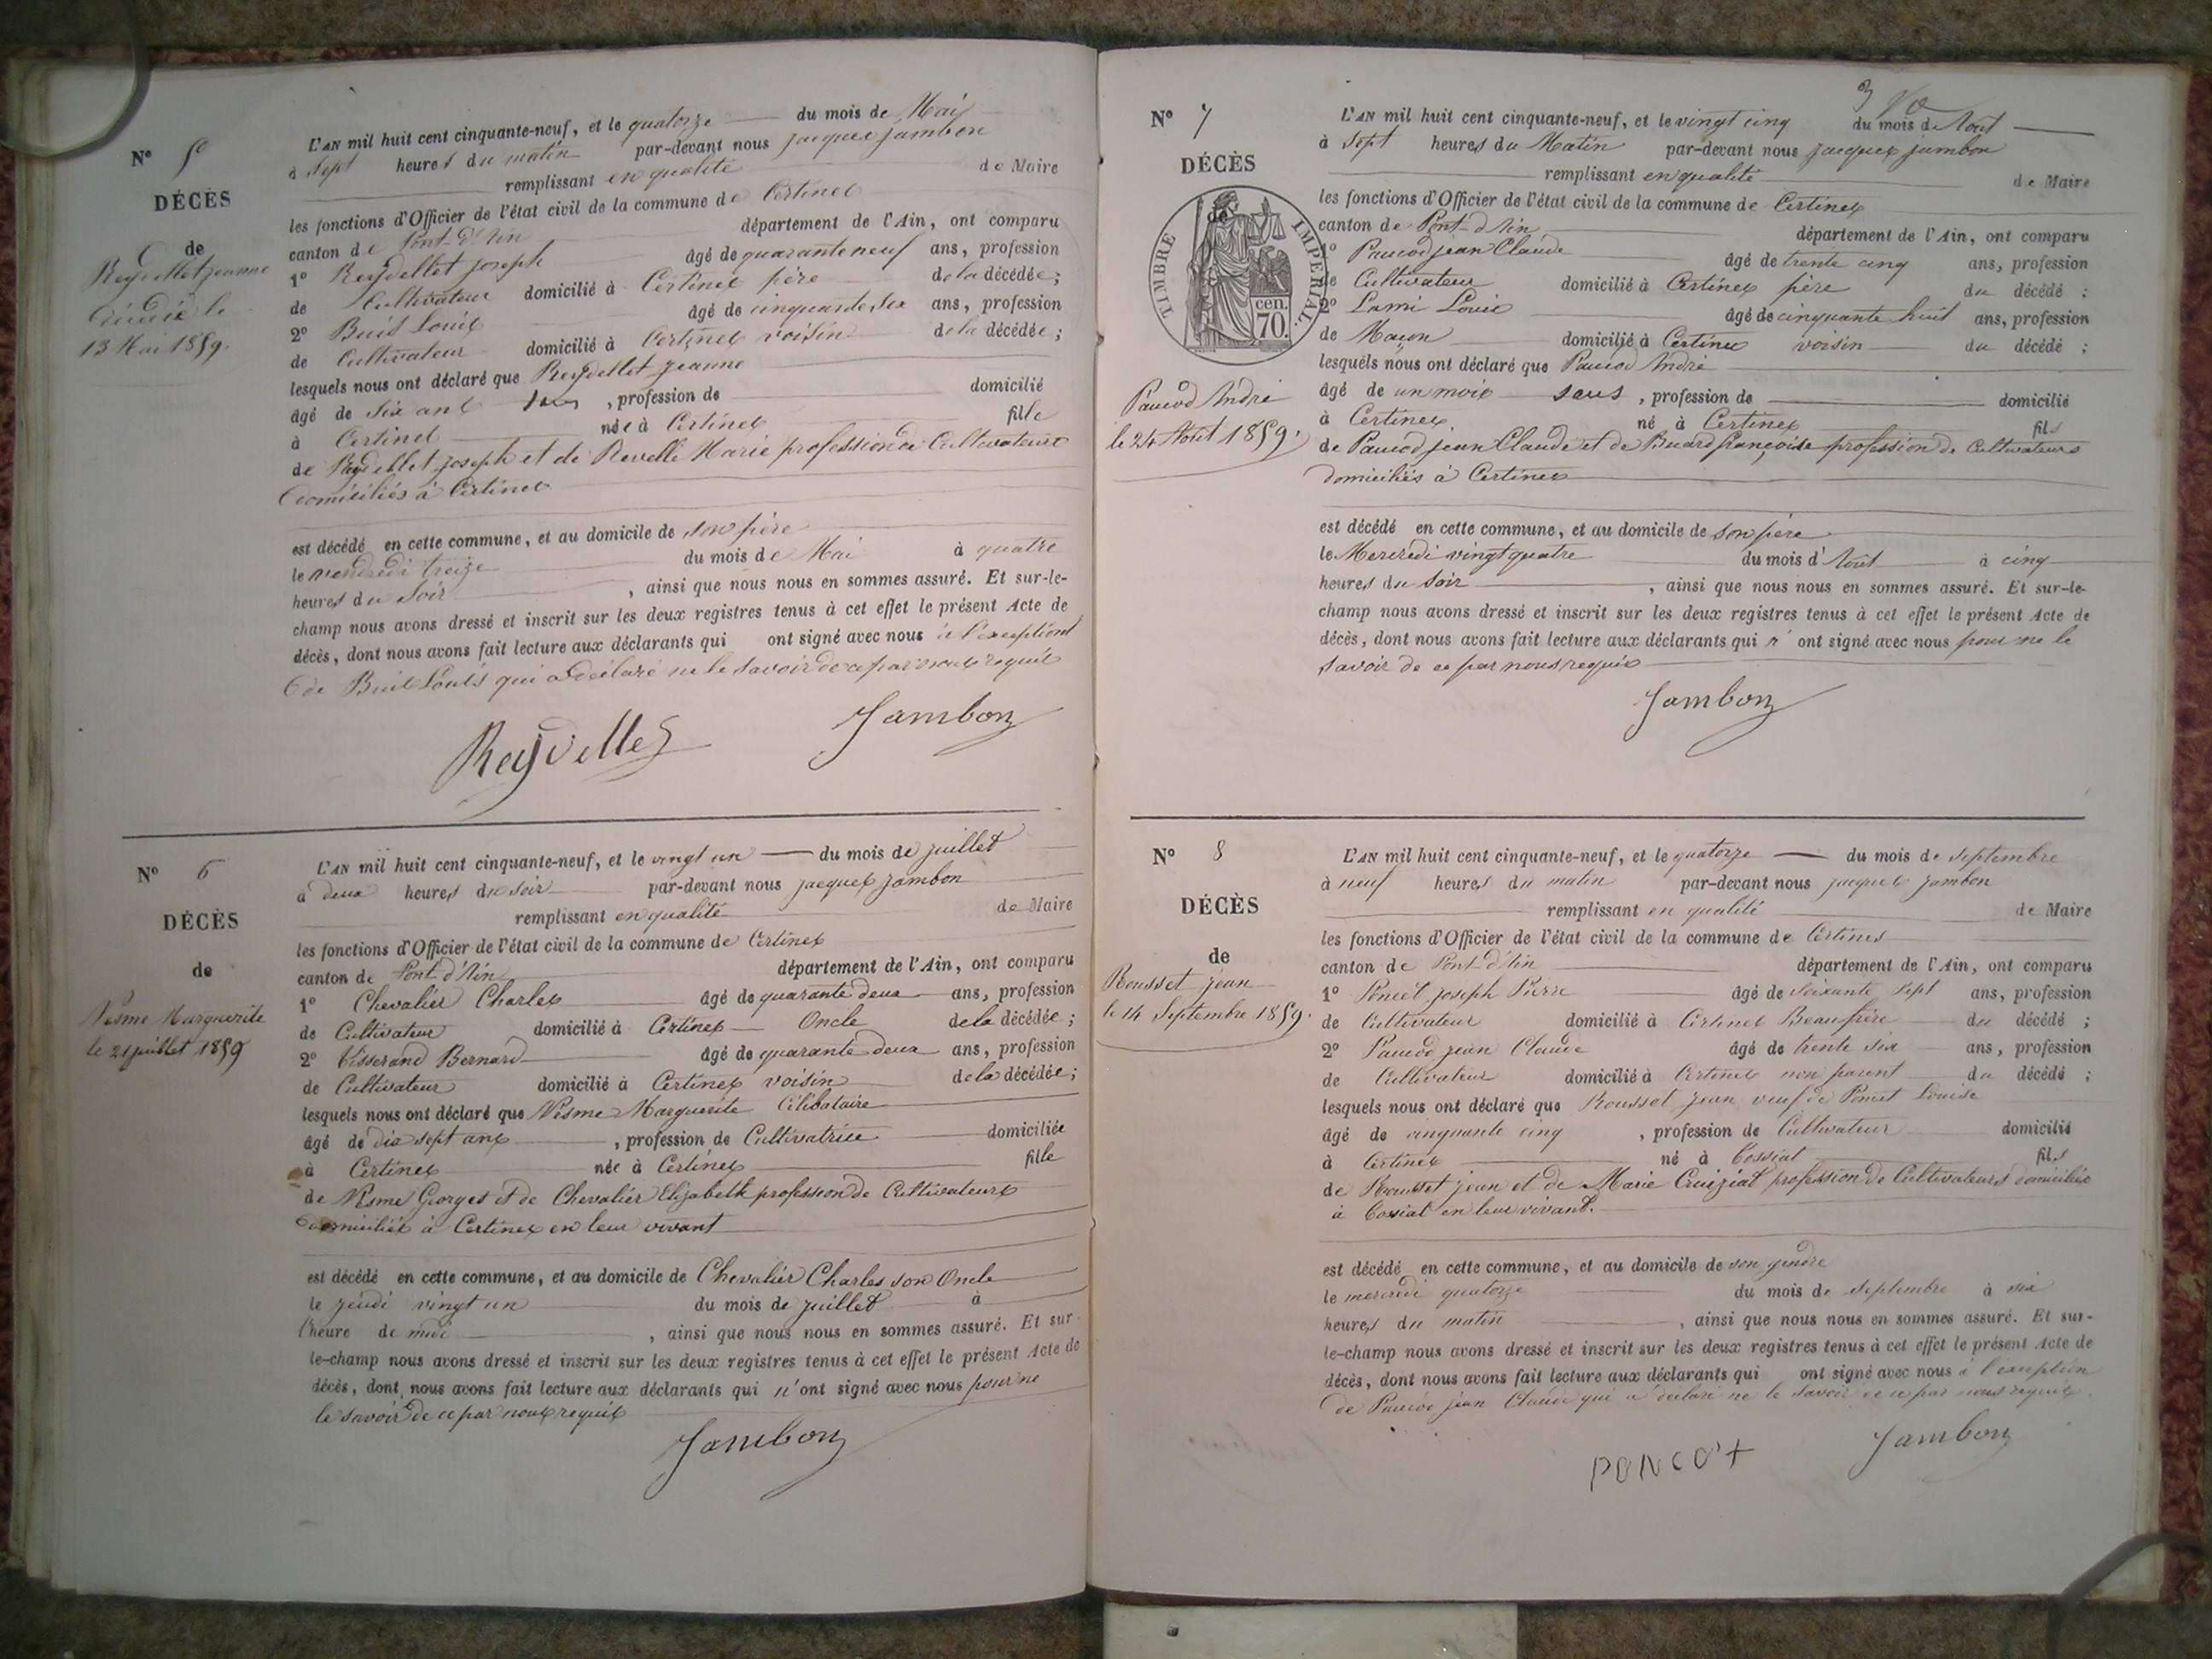 N° 5
DÉCÈS
de
Reydellet jeanne
décédée le
13 Mai 1859.
L'AN mil huit cent cinquante-neuf, et le quatorze du mois de Mai
à sept heures du matin par-devant nous jacques jambon
remplissant en qualité de Maire
les fonctions d'Officier de l'état civil de la commune de Certines
canton de Pont-d'Ain département de l'Ain, ont comparu
1° Reydellet joseph âgé de quarante neuf ans, profession
de Cultivateur domicilié à Certines père de la décédée ;
2° Buis Louis âgé de cinquante six ans, profession
de Cultivateur domicilié à Certines voisin de la décédée ;
lesquels nous ont déclaré que Reydellet jeanne
âgé de six ans , profession de domicilié
à Certines née à Certines fille
de Reydellet joseph et de Revelle Marie profession de Cultivateurs
domiciliés à Certines
est décédé en cette commune, et au domicile de son père
le vendredi treize du mois de Mai à quatre
heures du soir , ainsi que nous nous en sommes assuré. Et sur-le-
champ nous avons dressé et inscrit sur les deux registres tenus à cet effet le présent Acte de
décès, dont nous avons fait lecture aux déclarants qui ont signé avec nous à l'exception
de Buis Louis qui a déclaré ne le savoir de ce par nous requis
Reydellet Jambon
N° 6
DÉCÈS
de
Nesme Marguerite
le 21 juillet 1859
L'AN mil huit cent cinquante-neuf, et le vingt un du mois de juillet
à deux heures du soir par-devant nous jacques jambon
remplissant en qualité de Maire
les fonctions d'Officier de l'état civil de la commune de Certines
canton de Pont-d'Ain département de l'Ain, ont comparu
1° Chevalier Charles âgé de quarante deux ans, profession
de Cultivateur domicilié à Certines Oncle de la décédée ;
2° Tisserand Bernard âgé de quarante deux ans, profession
de Cultivateur domicilié à Certines voisin de la décédée ;
lesquels nous ont déclaré que Nesme Marguerite Célibataire
âgé de dix sept ans , profession de Cultivatrice domiciliée
à Certines née à Certines fille
de Nesme Georges et de Chevalier Elizabeth profession de Cultivateurs
domiciliés à Certines en leur vivant
est décédé en cette commune, et au domicile de Chevalier Charles son Oncle
le jeudi vingt un du mois de juillet à
l'heure de midi , ainsi que nous nous en sommes assuré. Et sur-
le-champ nous avons dressé et inscrit sur les deux registres tenus à cet effet le présent Acte de
décès, dont nous avons fait lecture aux déclarants qui n'ont signé avec nous pour ne
le savoir de ce par nous requis
Jambon
3
N° 7
DÉCÈS
de
TIMBRE IMPERIAL.
70 cen.
Paucod André
le 24 Août 1859.
L'AN mil huit cent cinquante-neuf, et le vingt cinq du mois d'Août
à sept heures du Matin par-devant nous jacques jambon
remplissant en qualité de Maire
les fonctions d'Officier de l'état civil de la commune de Certines
canton de Pont-d'Ain département de l'Ain, ont comparu
1° Paucod jean Claude âgé de trente cinq ans, profession
de Cultivateur domicilié à Certines père du décédé ;
2° Lami Louis âgé de cinquante huit ans, profession
de Maçon domicilié à Certines voisin du décédé ;
lesquels nous ont déclaré que Paucod André
âgé de un mois sans , profession de domicilié
à Certines né à Certines fils
de Paucod jean Claude et de Buard françoise profession de Cultivateurs
domiciliés à Certines
est décédé en cette commune, et au domicile de son père
le Mercredi vingt quatre du mois d'Août à cinq
heures du soir , ainsi que nous nous en sommes assuré. Et sur-le-
champ nous avons dressé et inscrit sur les deux registres tenus à cet effet le présent Acte de
décès, dont nous avons fait lecture aux déclarants qui n'ont signé avec nous pour ne le
savoir de ce par nous requis
Jambon
N° 8
DÉCÈS
de
Rousset jean
le 14 Septembre 1859.
L'AN mil huit cent cinquante-neuf, et le quatorze du mois de septembre
à neuf heures du matin par-devant nous jacques jambon
remplissant en qualité de Maire
les fonctions d'Officier de l'état civil de la commune de Certines
canton de Pont-d'Ain département de l'Ain, ont comparu
1° Poncet joseph Pierre âgé de soixante sept ans, profession
de Cultivateur domicilié à Certines Beaufrère du décédé ;
2° Paucod jean Claude âgé de trente six ans, profession
de Cultivateur domicilié à Certines non parent du décédé ;
lesquels nous ont déclaré que Rousset jean veuf de Poncet Louise
âgé de cinquante cinq , profession de Cultivateur domicilié
à Certines né à Cossiat fils
de Rousset jean et de Marie Cruiziat profession de Cultivateurs domiciliés
à Cossiat en leur vivant.
est décédé en cette commune, et au domicile de son gendre
le mercredi quatorze du mois de septembre à six
heures du matin , ainsi que nous nous en sommes assuré. Et sur-
le-champ nous avons dressé et inscrit sur les deux registres tenus à cet effet le présent Acte de
décès, dont nous avons fait lecture aux déclarants qui ont signé avec nous à l'exception
de Paucod jean Claude qui a déclaré ne le savoir de ce par nous requis.
PONCOT Jambon